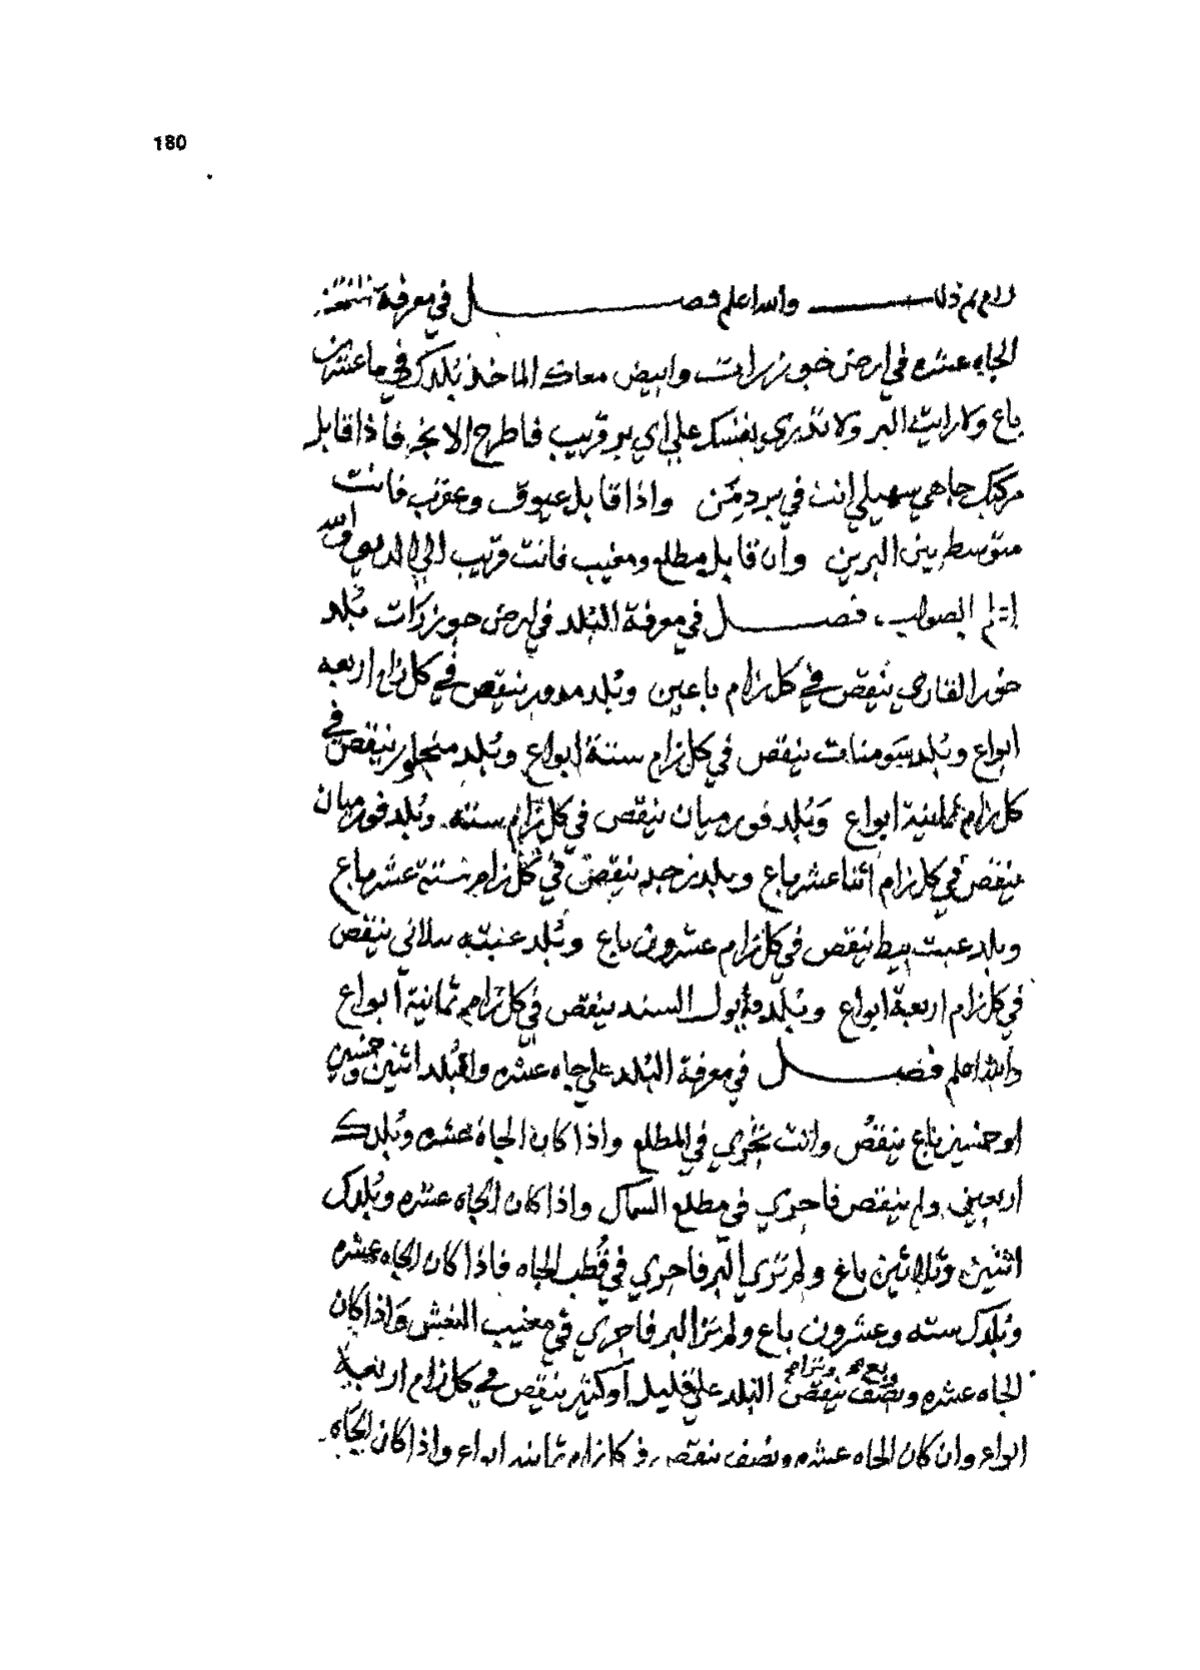 180
والله اعلم فصل في معرفة
الجاه عشره في ارض خوزرات وابيض معاك الماء خذ بُلدك في ما عشرين
باع ولا رايت البر ولا تدري بنفسك علي اي بر قريب فاطرح الانجر فاذا قابل
مركبك جاهي سهيلي انت في بر دمّن واذا قابل عيوق وعقرب فانت
متوسط بين البرين وان قابل مطلع ومغيب فانت قريب الي الديو والله
اعلم الصواب فصل في معرفة البُلد في ارض جوزرات بُلد
خور الفاري ينقص في كل زام باعين وبُلد مدور ينقص في كل زام اربعه
ابواع وبُلد سومنات ينقص في كل زام ستة ابواع وبُلد منجلور ينقص في
كل زام ثمانية ابواع وبُلد فورميان ينقص في كل زام سته وبُلد فورميان
ينقص في كل زام اثنا عشر باع وبلد ينقص في كل زام ستة عشر باع
وبلد بيط ينقص في كل زام عشرون باع وبُلد ينقص
في كل زام اربعة ابواع وبُلد السند ينقص في كل زام ثمانية ابواع
والله اعلم فصل في معرفة البُلد علي جاه عشره والبُلد اثنين وخمسين
او خمسين باع ينقص وانت تجري في المطلع واذا كان الجاه عشره وبُلدك
اربعين ولم ينقص فاجري في مطلع السماك واذا كان الجاه عشره وبُلدك
اثنين وثلاثين باع ولم ترى البر فاجري في قُطب الجاه فاذا كان الجاه عشره
وبُلدك سته وعشرون باع ولم ترا البر فاجري في مغيب النعش واذا كان
الجاه عشره ونصف ينقص البلد علي قليل او كثير ينقص في كل زام اربعة
ابواع وان كان الجاه عشره ونصف ينقص في كل زام ثمانيه ابواع واذا كان الجاه